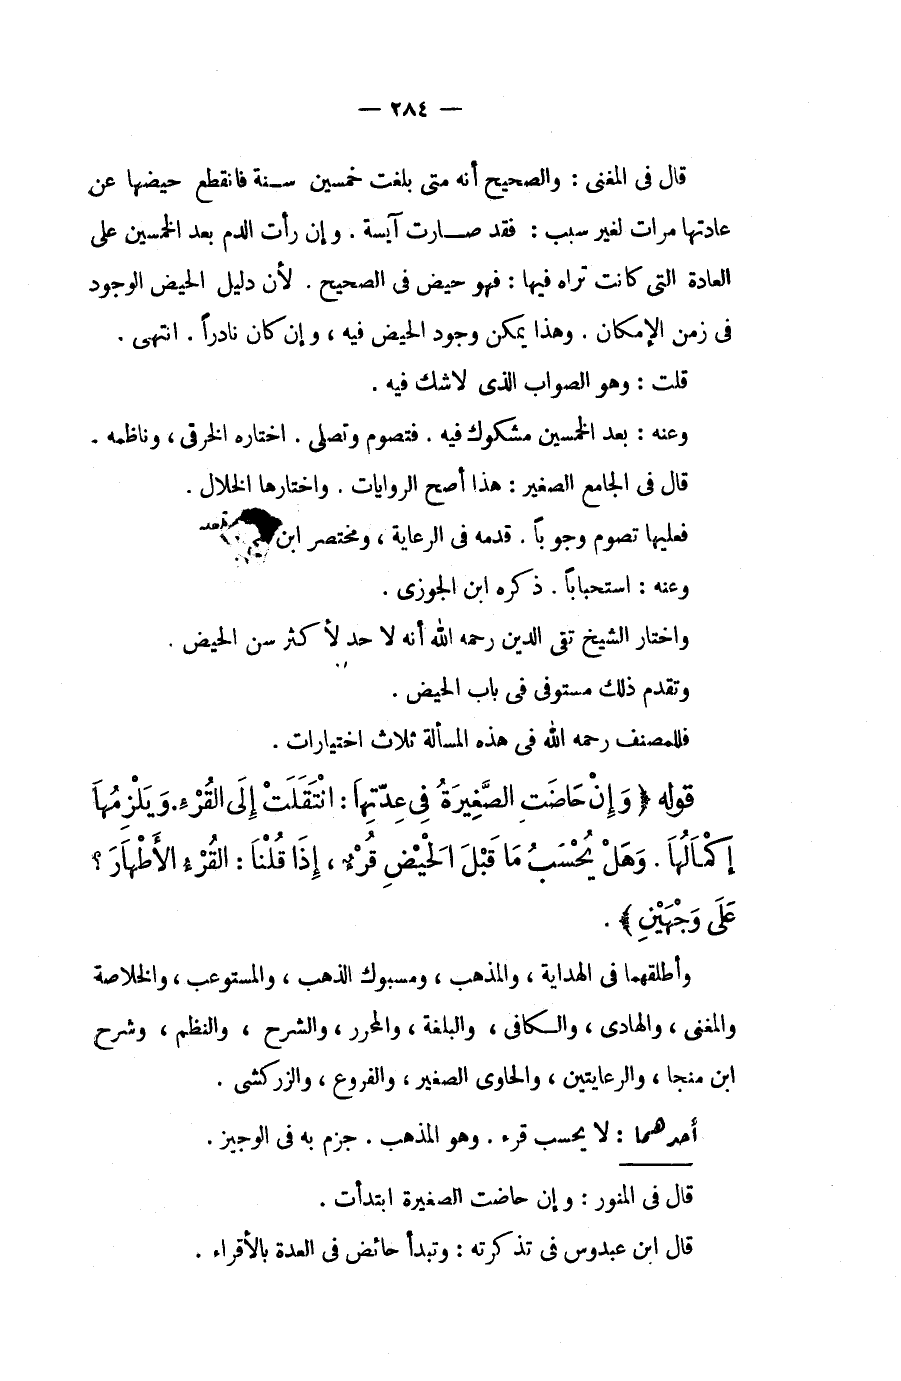 — ٢٨٤ —
قال فى المغنى : والصحيح أنه متى بلغت خمسين سـنة فانقطع حيضها عن
عادتها مرات لغير سبب : فقد صـارت آيسة . وإن رأت الدم بعد الخمسين على
العادة التى كانت تراه فيها : فهو حيض فى الصحيح . لأن دليل الحيض الوجود
فى زمن الإمكان . وهذا يمكن وجود الحيض فيه ، وإن كان نادراً . انتهى .
قلت : وهو الصواب الذى لاشك فيه .
وعنه : بعد الخمسين مشكوك فيه . فتصوم وتصلى . اختاره الخرقى ، وناظمه .
قال فى الجامع الصغير : هذا أصح الروايات . واختارها الخلال .
فعليها تصوم وجوباً . قدمه فى الرعاية ، ومختصر ابن
وعنه : استحباباً . ذكره ابن الجوزى .
واختار الشيخ تقى الدين رحمه الله أنه لا حد لأكثر سن الحيض .
وتقدم ذلك مستوفى فى باب الحيض .
فللمصنف رحمه الله فى هذه المسألة ثلاث اختيارات .
قوله ﴿ وَإِنْ حَاضَتِ الصَّغِيرَةُ فِى عِدّتِهاَ : انْتَقَلَتْ إِلَى القُرْءِ. وَيَلْزِمُهاَ
إِكْمَالُهاَ . وَهَلْ يُحْسَبُ مَا قَبْلَ الْحَيْضِ قُرْءٌ ، إِذَا قُلْنَا : القُرْءِ الأَطْهَارَ ؟
عَلَى وَجْهَيْنِ ﴾ .
وأطلقهما فى الهداية ، والمذهب ، ومسبوك الذهب ، والمستوعب ، والخلاصة
والمغنى ، والهادى ، والـكافى ، والبلغة ، والمحرر ، والشرح ، والنظم ، وشرح
ابن منجا ، والرعايتين ، والحاوى الصغير ، والفروع ، والزركشى .
أحدهما : لا يحسب قرء . وهو المذهب . جزم به فى الوجيز .
قال فى المنور : وإن حاضت الصغيرة ابتدأت .
قال ابن عبدوس فى تذكرته : وتبدأ حائض فى العدة بالأقراء .